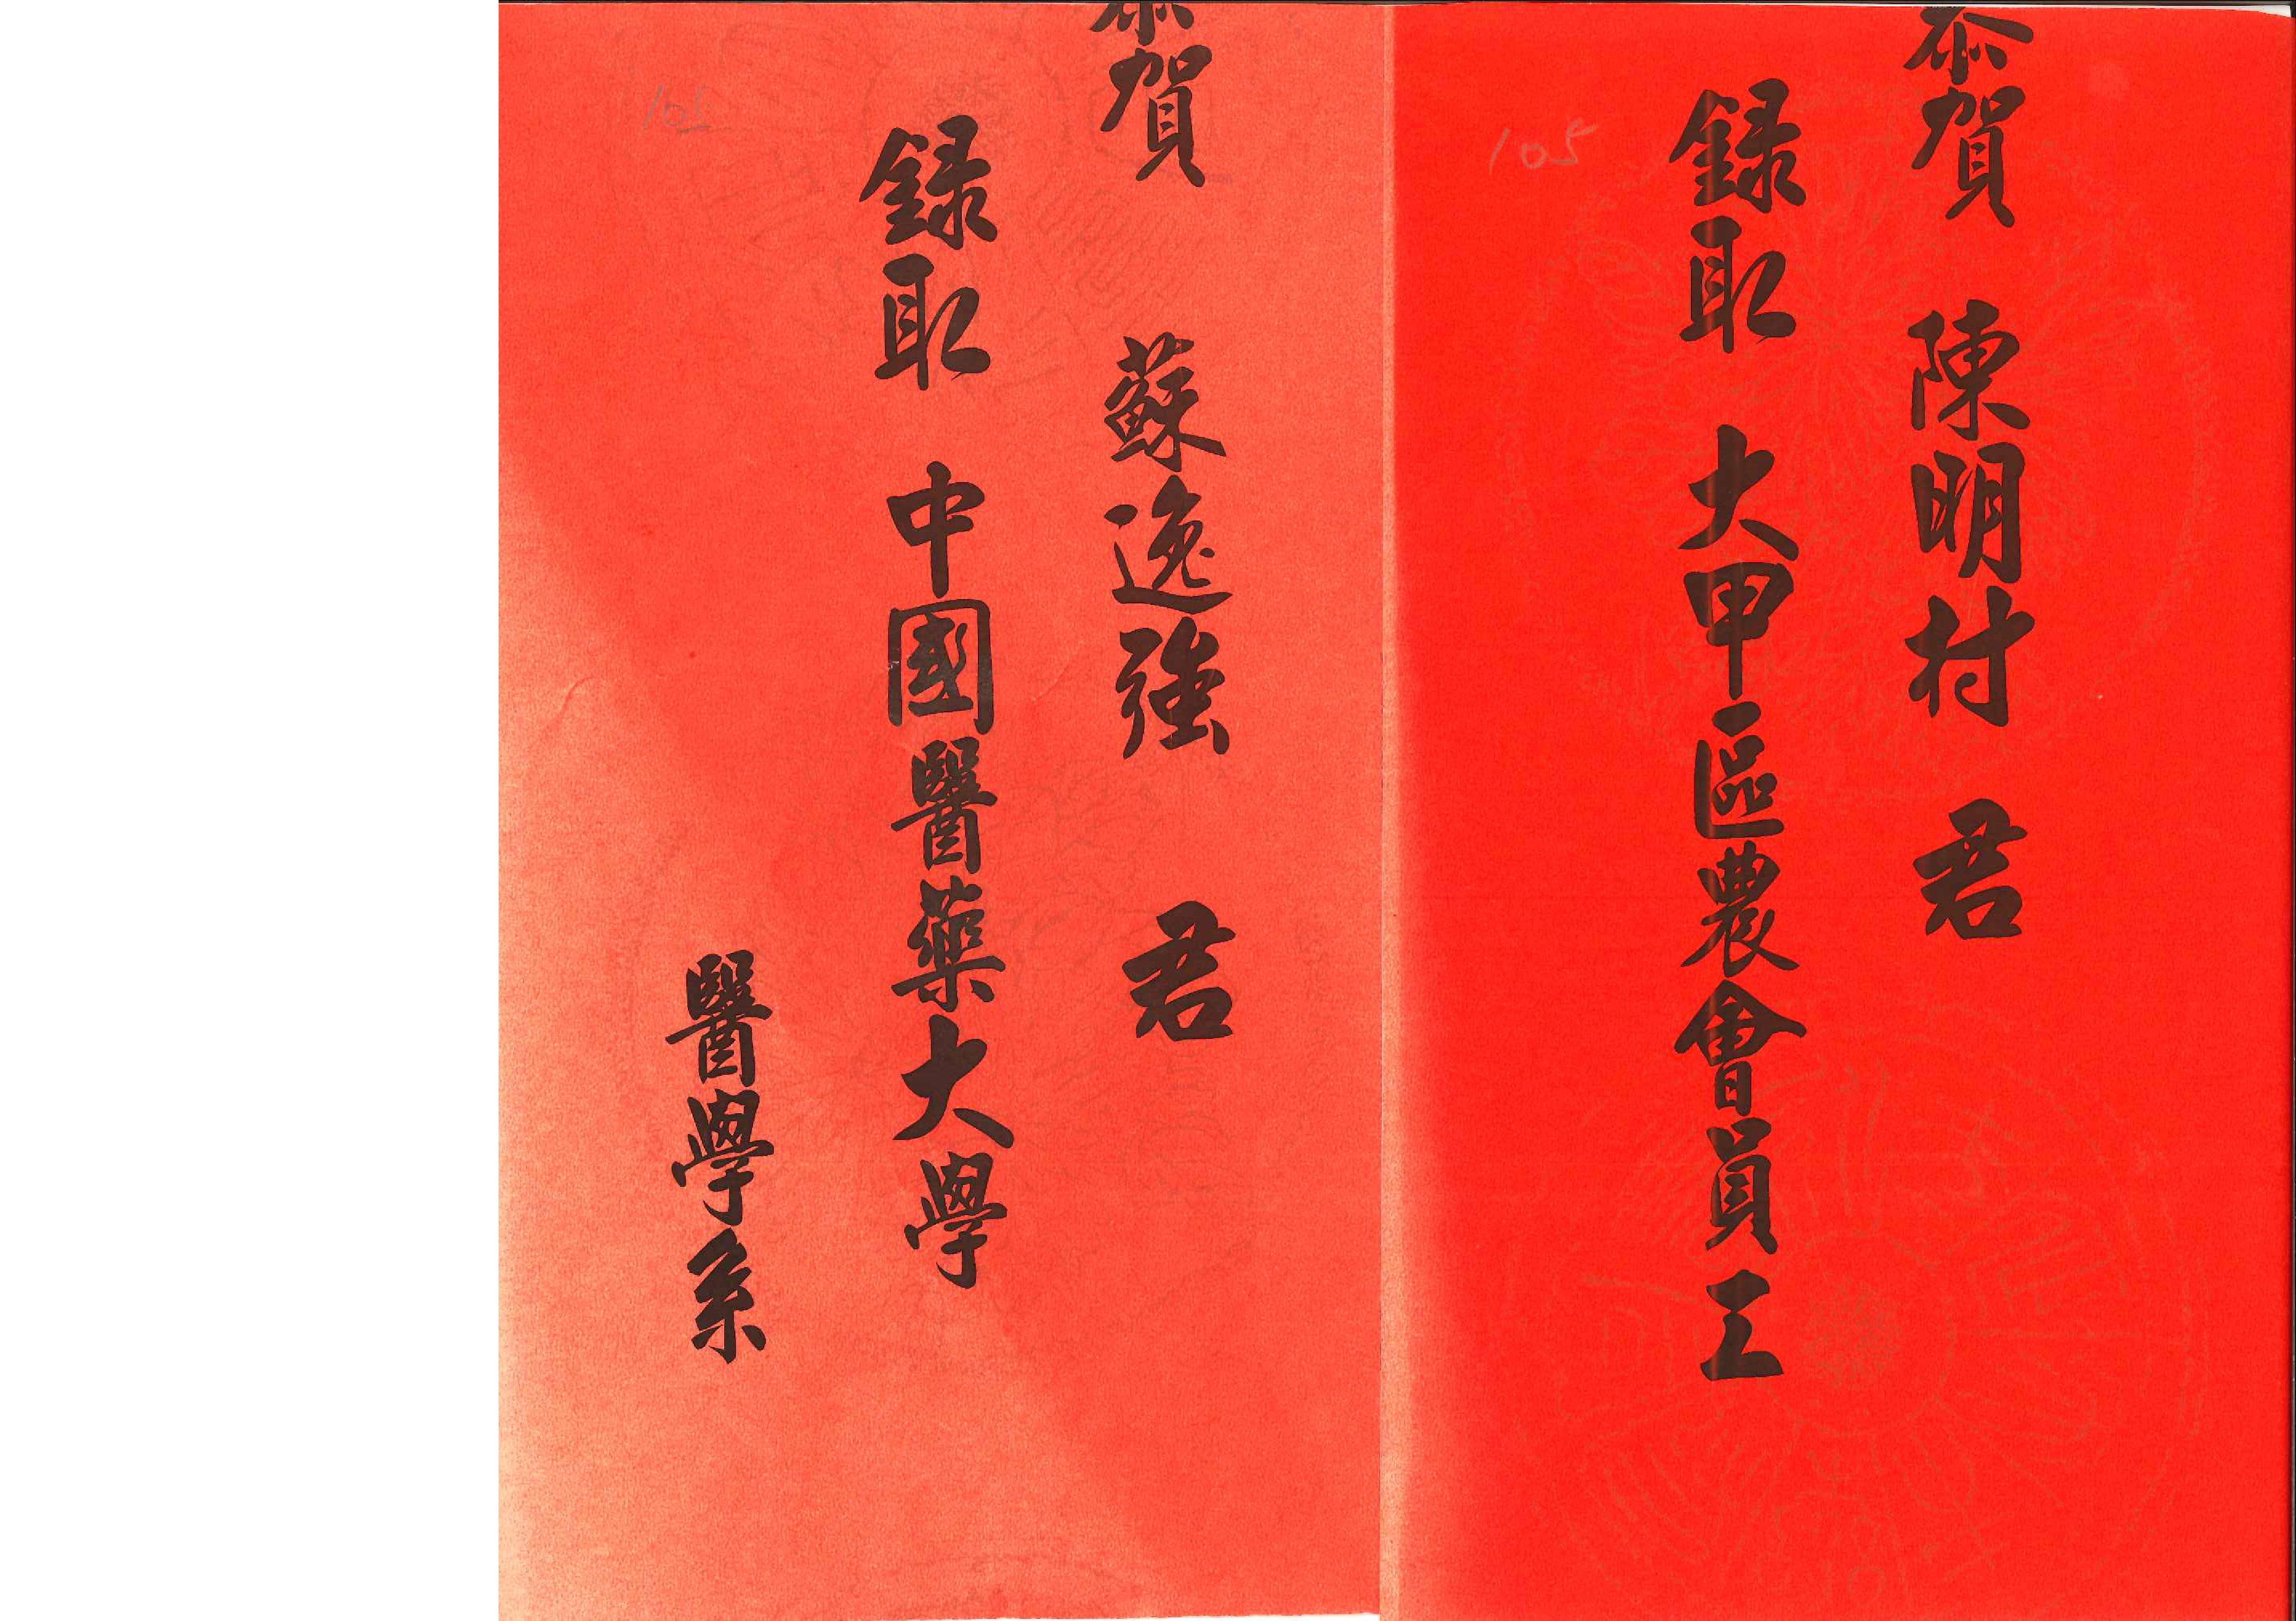 恭賀 陳明村 君
錄取 大甲區農會員工
105
恭賀 蘇逸強 君
錄取 中國醫藥大學
醫學系
105